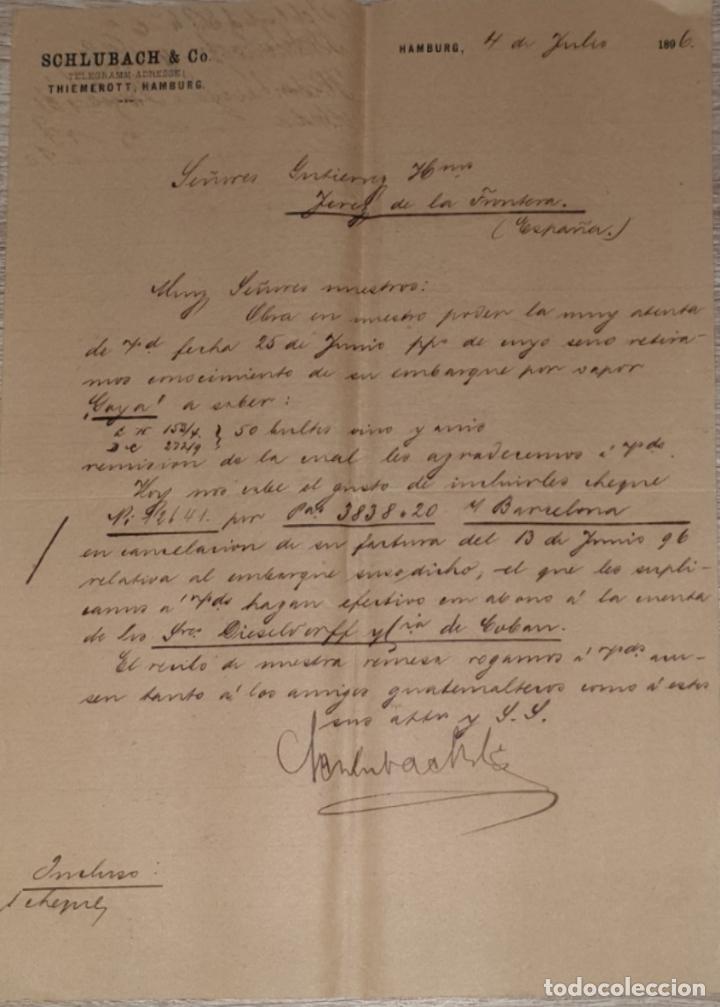 SCHLUBACH & Co.
TELEGRAMM-ADRESSE:
THIEMEROTT, HAMBURG.
HAMBURG, 4 de Julio 1896.
Señores Gutierrez Hnos
Jerez de la Frontera.
(España.)
Muy Señores nuestros:
Obra en nuestro poder la muy atenta
de Vd fecha 25 de Junio ppo de cuyo seno retira-
mos conocimiento de su embarque por vapor
"Goya" a saber:
152/4 } 50 bultos vino y
272/9
remision de la cual les agradecemos á Vds.
Hoy nos cabe el gusto de incluirles cheque
No 92641. por Pas 3838.20 s/ Barcelona
en cancelacion de su factura del 13 de Junio 96
relativa al embarque susodicho, el que les supli-
camos á Vds hagan efectivo con abono á la cuenta
de los Sres Dieseldorff y Cia de Coban.
El recibo de nuestra remesa rogamos á Vds acu-
sen tanto á los amigos guatemaltecos como á estos
sus attos y S. S.
Schlubach & Co
Incluso:
1 cheque
todocoleccion